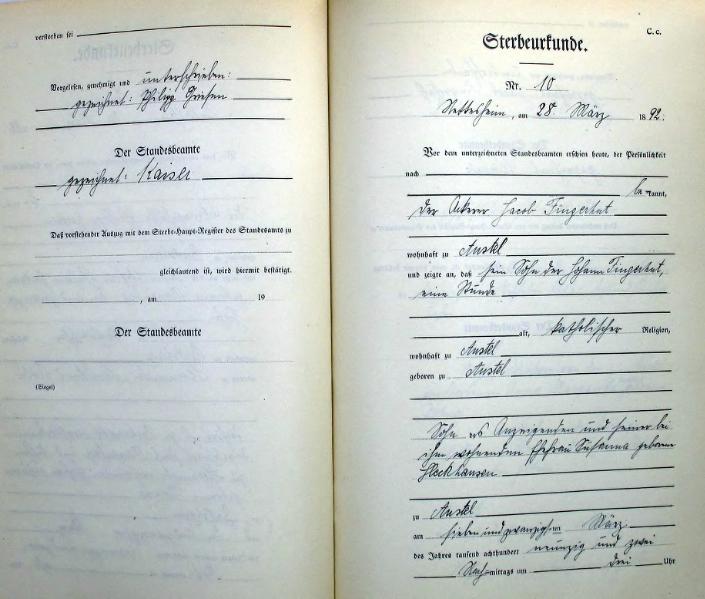 verstorben sei
Vorgelesen, genehmigt und unterschrieben:
gezeichnet: Philipp Giesen
Der Standesbeamte
gezeichnet: Kaiser
Daß vorstehender Auszug mit dem Sterbe-Haupt-Register des Standesamts zu
gleichlautend ist, wird hiermit bestätigt.
, am 19
Der Standesbeamte
(Siegel)
C. c.
Sterbeurkunde.
Nr. 10
Nettesheim, am 28. März 1892.
Vor dem unterzeichneten Standesbeamten erschien heute, der Persönlichkeit
nach
bekannt,
der Ackerer Jacob Fingerhut
wohnhaft zu Anstel
und zeigte an, daß sein Sohn der Johann Fingerhut,
eine Stunde
alt, katholischer Religion,
wohnhaft zu Anstel
geboren zu Anstel
Sohn des Anzeigenden und seiner bei
ihm wohnenden Ehefrau Susanna geborene
Heckhausen
zu Anstel
am siebenundzwanzigsten März
des Jahres tausend achthundert neunzig und zwei
Nachmittags um drei Uhr